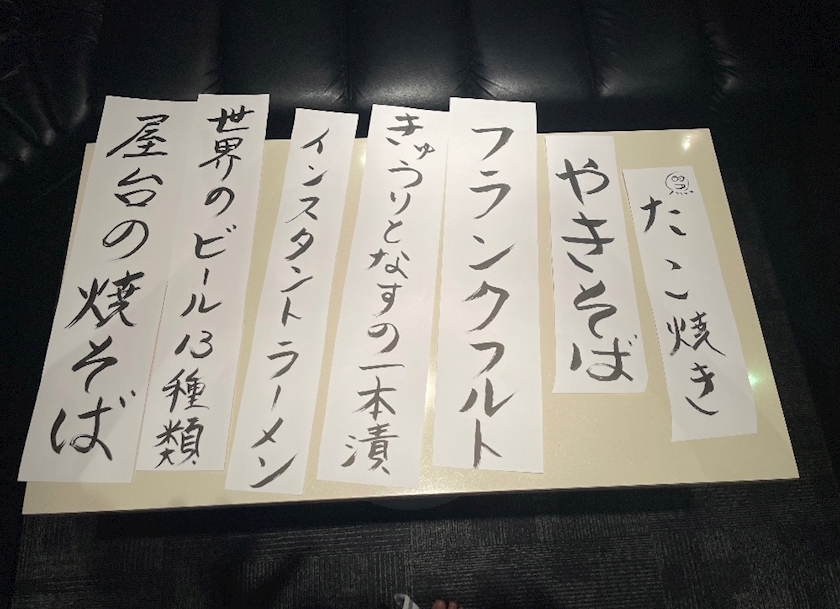 たこ焼き
やきそば
フランクフルト
きゅうりとなすの一本漬
インスタントラーメン
世界のビール13種類
屋台の焼そば